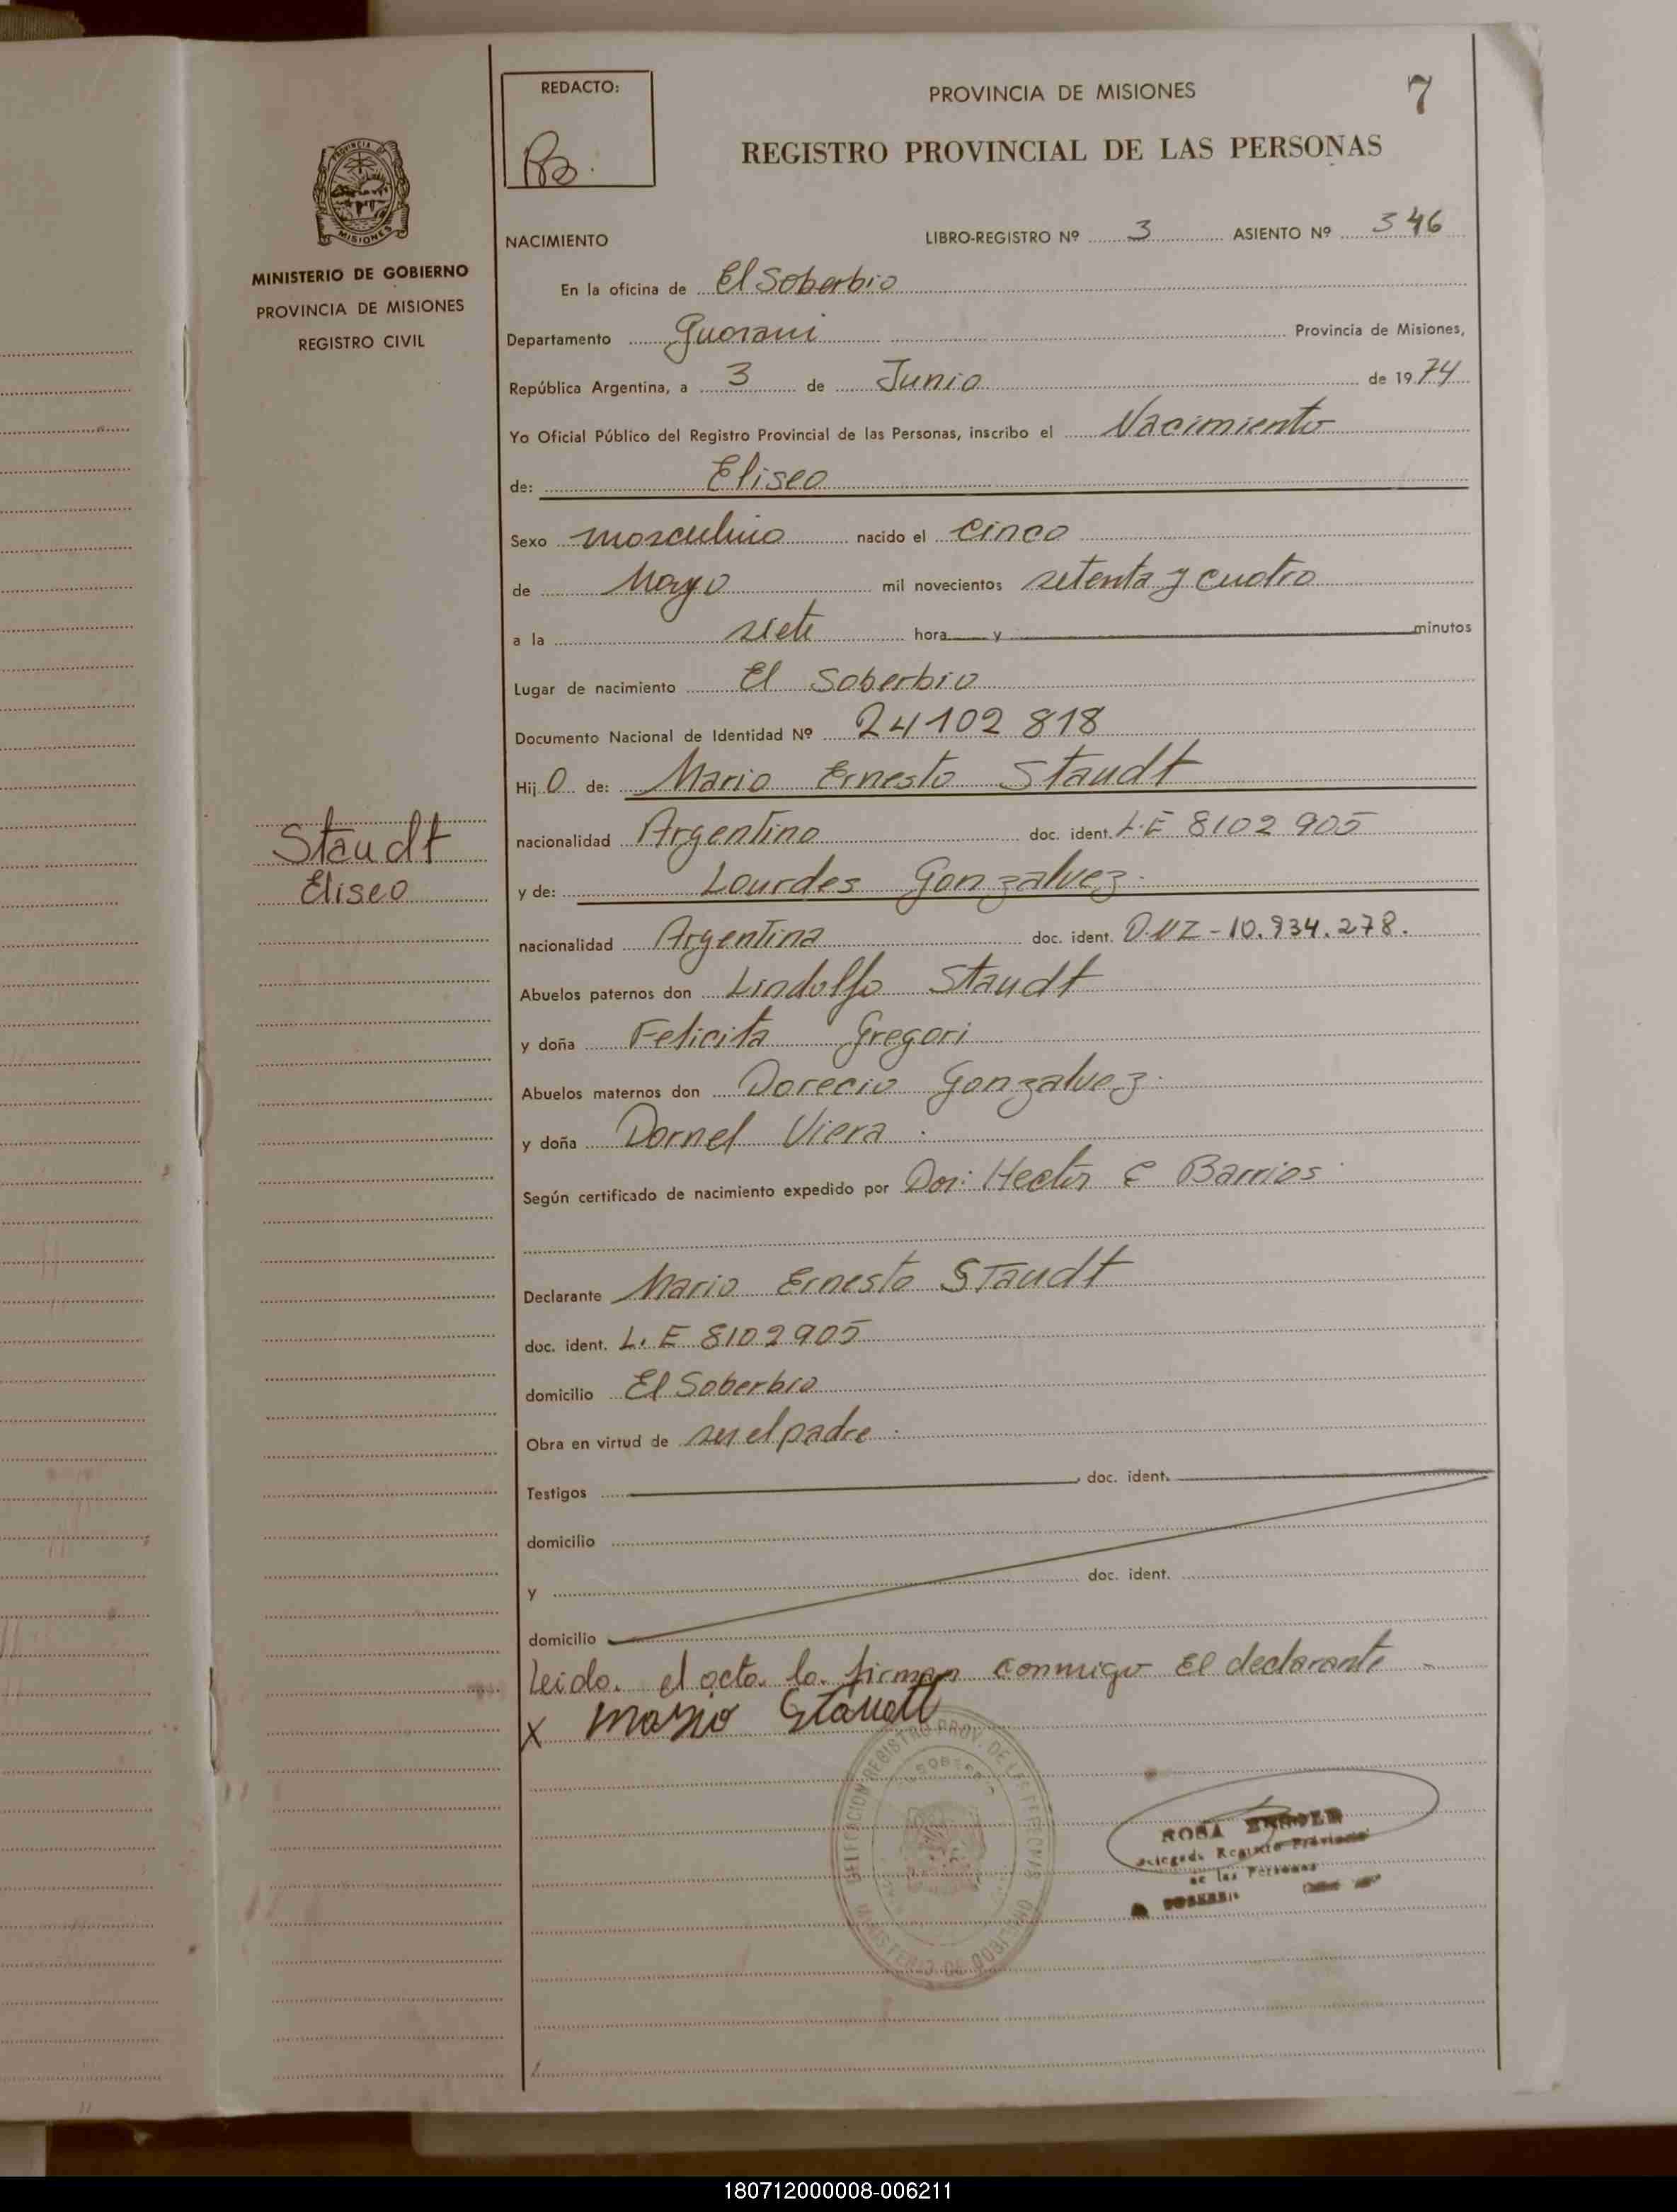 REDACTO:
PROVINCIA DE MISIONES
7
REGISTRO PROVINCIAL DE LAS PERSONAS
PROVINCIA DE
MISIONES
MINISTERIO DE GOBIERNO
PROVINCIA DE MISIONES
REGISTRO CIVIL
NACIMIENTO
LIBRO-REGISTRO Nº 3 ASIENTO Nº 346
En la oficina de El Soberbio
Departamento Guarani Provincia de Misiones,
República Argentina, a 3 de Junio de 1974
Yo Oficial Público del Registro Provincial de las Personas, inscribo el Nacimiento
de: Eliseo
Sexo masculino nacido el cinco
de Mayo mil novecientos setenta y cuatro
a la siete hora y minutos
Lugar de nacimiento El Soberbio
Documento Nacional de Identidad Nº 24102 818
Hij o de: Mario Ernesto Staudt
Staudt
Eliseo
nacionalidad Argentino doc. ident. L.E 8102 905
y de: Lourdes Gonzalvez.
nacionalidad Argentina doc. ident. D.N I - 10.934.278.
Abuelos paternos don Lindolfo Staudt
y doña Felicita Gregori
Abuelos maternos don Dorecio Gonzalvez.
y doña Dornel Viera.
Según certificado de nacimiento expedido por Hector E Barrios
Declarante Mario Ernesto Staudt
doc. ident. L. E 8102905
domicilio El Soberbio
Obra en virtud de ser el padre.
Testigos doc. ident.
domicilio
y doc. ident.
domicilio
Leido. el acta la firman conmigo El declarante
x Mario Staudt
DELEGACION REGISTRO PROV. DE LAS PERSONAS
MINISTERIO DE GOBIERNO
ROSA
Registro Provincial
de las Personas
SOBERBIO
180712000008-006211